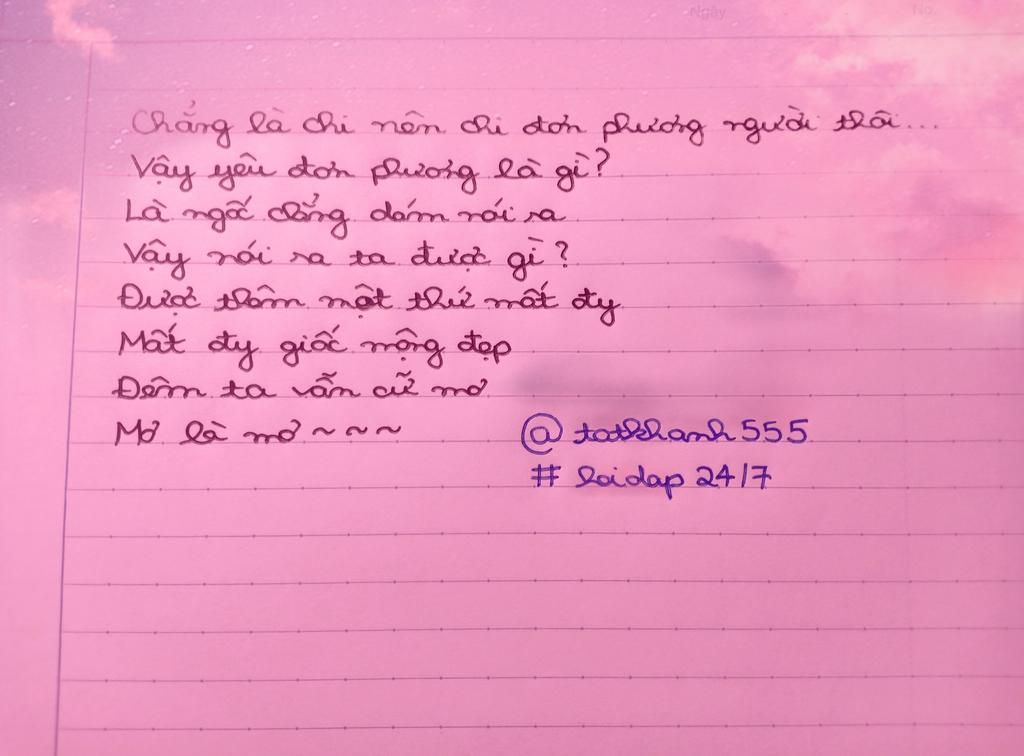 Ngày
No.
Chẳng là chi nên chỉ đơn phương người thôi...
Vậy yêu đơn phương là gì?
Là ngốc chẳng dám nói ra
Vậy nói ra ta được gì?
Được thêm một thứ mất đy
Mất đy giấc mộng đẹp
Đêm ta vẫn cứ mơ
Mơ là mơ ~ ~ ~
@tatkhanh555
# loidap 24/7